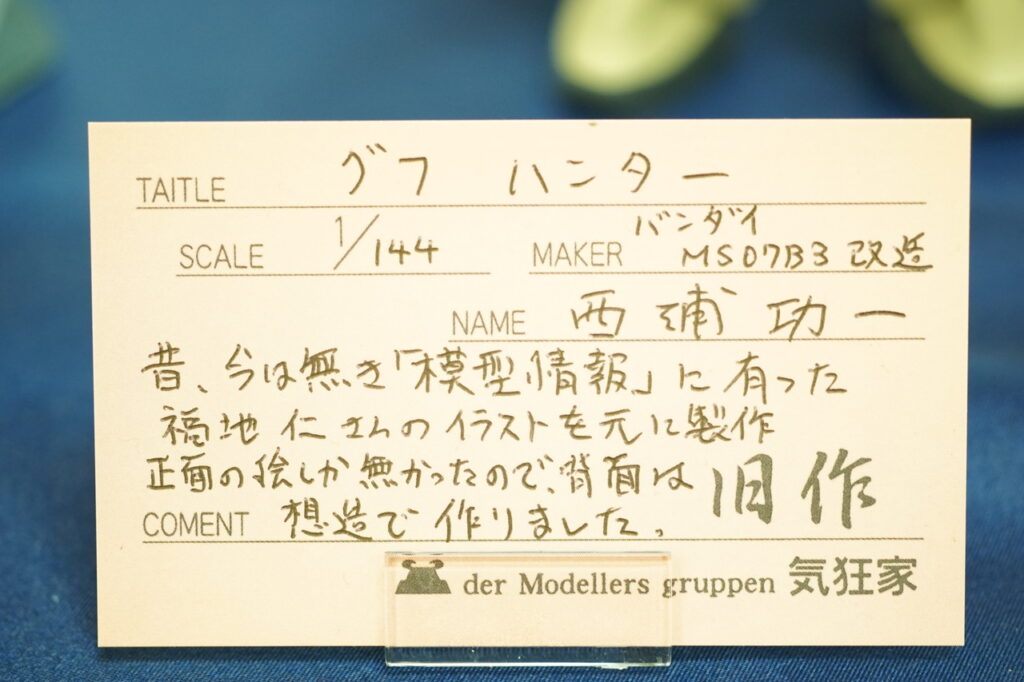 TAITLE グフ ハンター
SCALE 1/144 MAKER バンダイ MS07B3 改造
NAME 西浦 功一
昔、今は無き「模型情報」に有った
福地 仁さんのイラストを元に製作
正面の絵しか無かったので、背面は
COMENT 想造で作りました。
旧作
der Modellers gruppen 気狂家